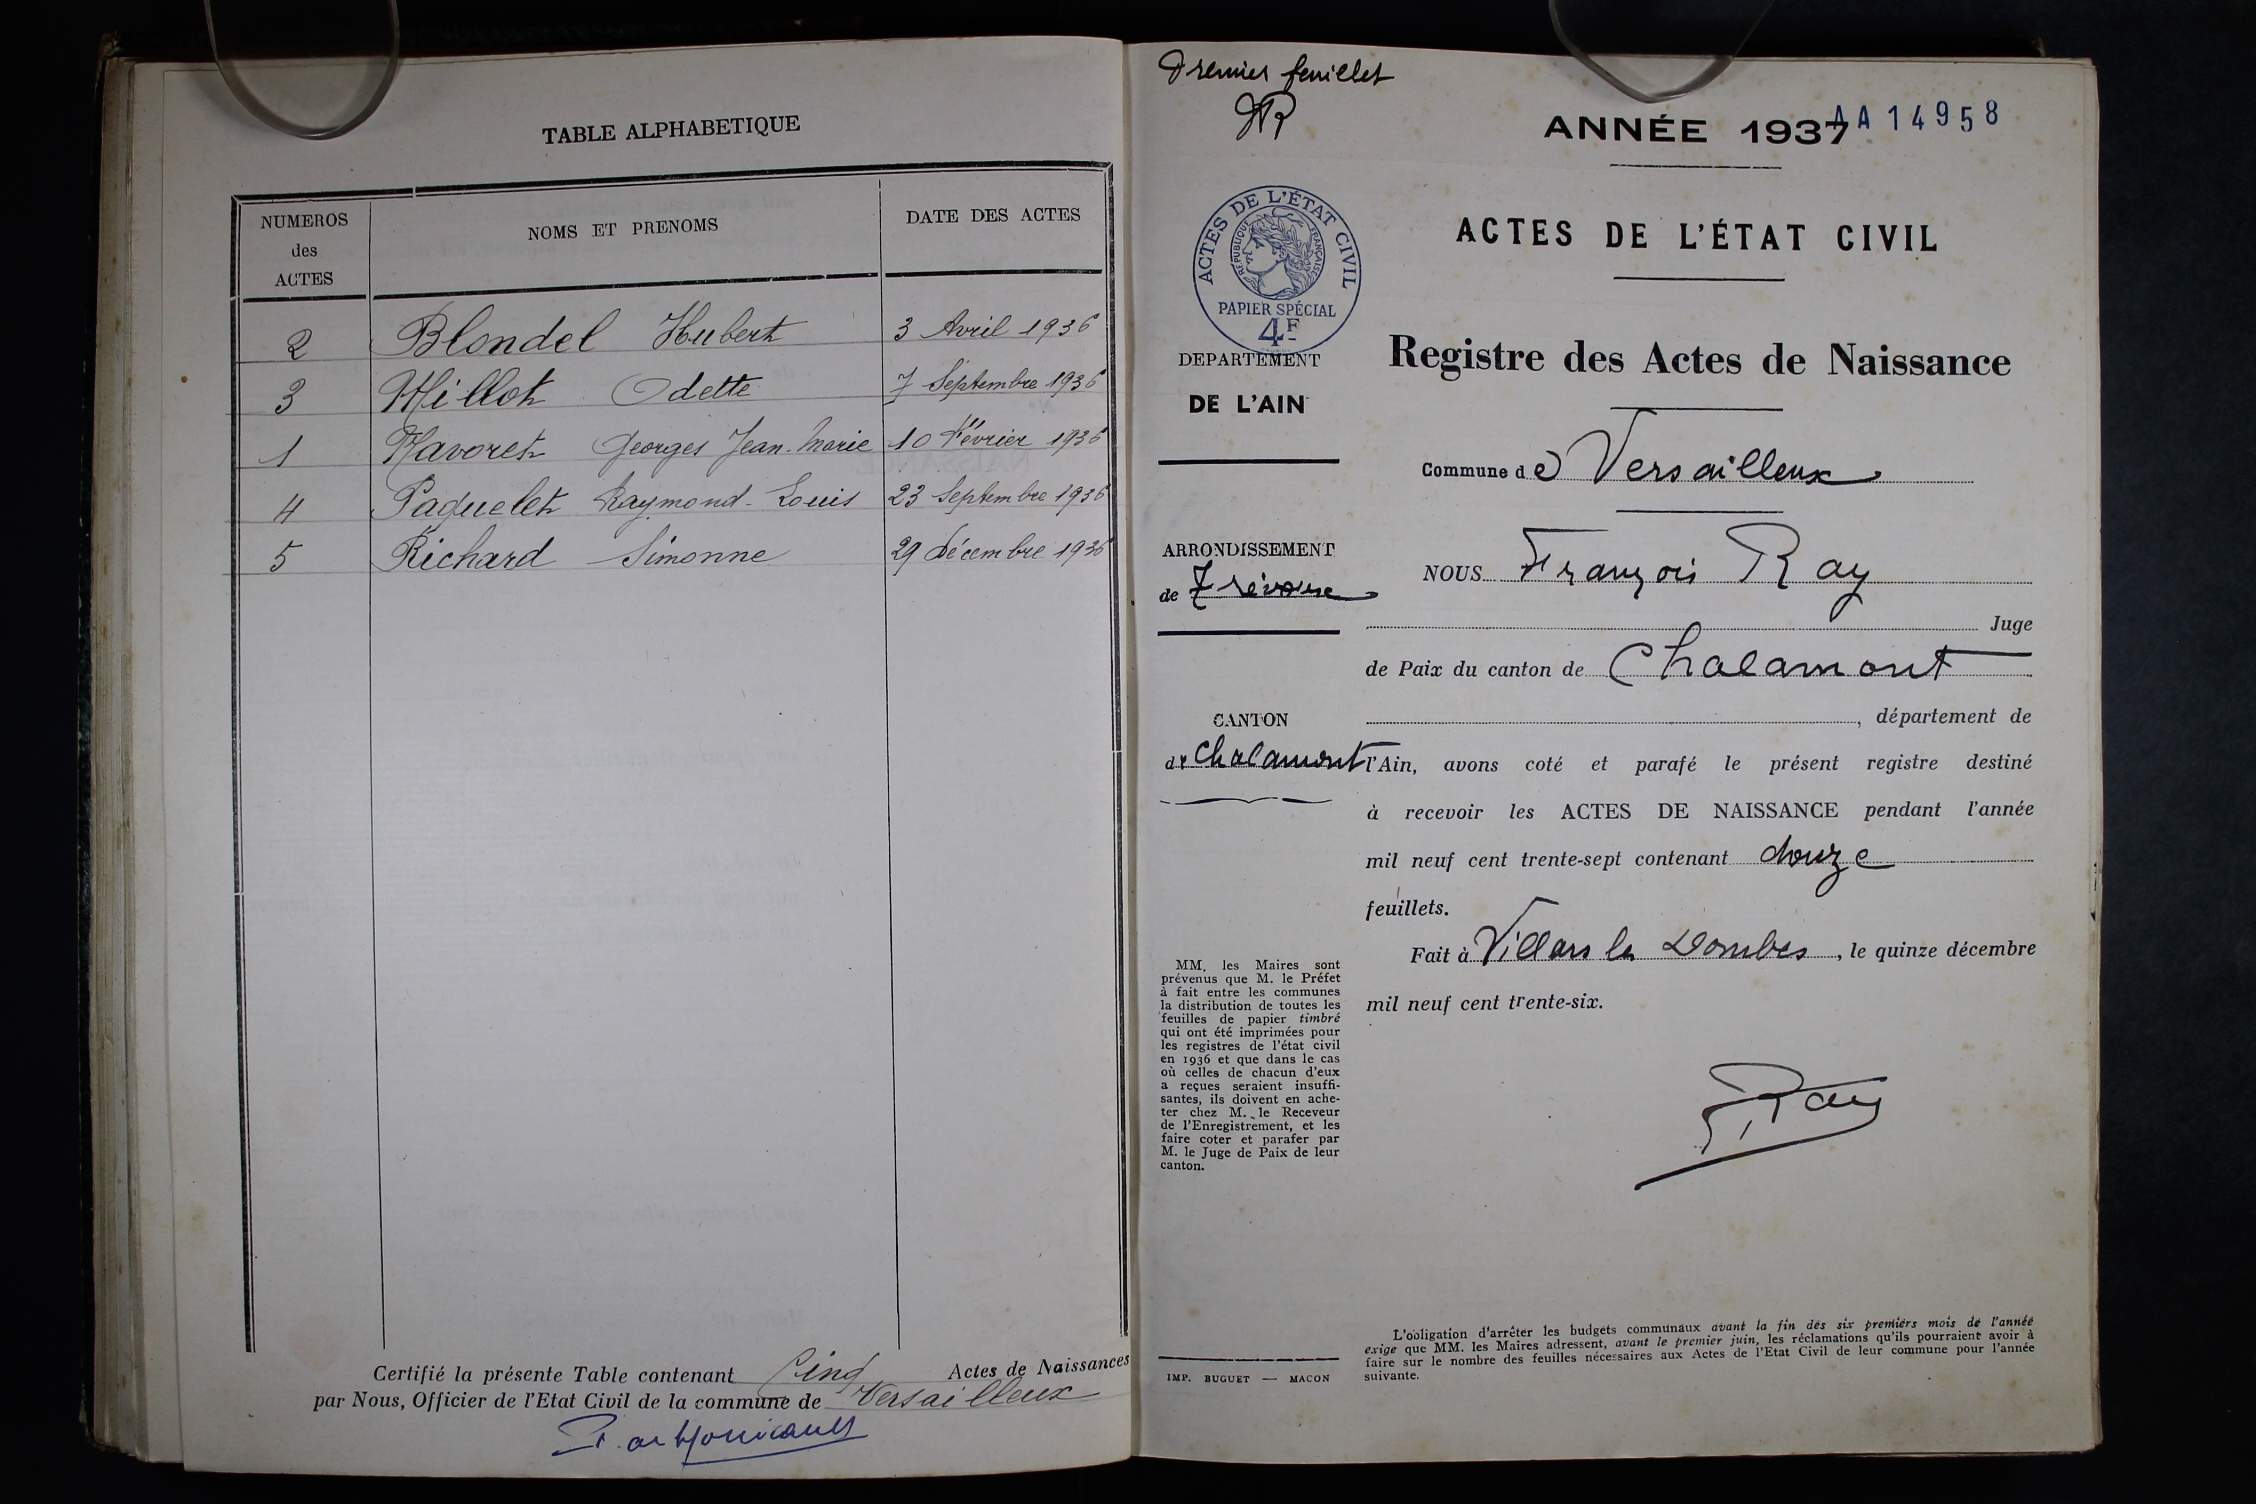 TABLE ALPHABETIQUE
NUMEROS
des
ACTES
NOMS ET PRENOMS
DATE DES ACTES
2 Blondel Hubert 3 Avril 1936
3 Millot Odette 7 Septembre 1936
1 Navoret Georges Jean-Marie 10 Février 1936
4 Paquelet Raymond-Louis 23 Septembre 1936
5 Richard Simonne 29 Décembre 1936
Certifié la présente Table contenant Cinq Actes de Naissances
par Nous, Officier de l'Etat Civil de la commune de Versailleux
Premier feuillet
ANNÉE 1937
AA 14958
ACTES DE L'ÉTAT CIVIL
RÉPUBLIQUE FRANÇAISE
PAPIER SPÉCIAL
4F
DEPARTEMENT
DE L'AIN
ARRONDISSEMENT
de Trévoux
CANTON
de Chalamont
MM. les Maires sont
prévenus que M. le Préfet
à fait entre les communes
la distribution de toutes les
feuilles de papier timbré
qui ont été imprimées pour
les registres de l'état civil
en 1936 et que dans le cas
où celles de chacun d'eux
a reçues seraient insuffi-
santes, ils doivent en ache-
ter chez M. le Receveur
de l'Enregistrement, et les
faire coter et parafer par
M. le Juge de Paix de leur
canton.
IMP. BUGUET — MACON
ACTES DE L'ÉTAT CIVIL
Registre des Actes de Naissance
Commune de Versailleux
NOUS François Ray
Juge
de Paix du canton de Chalamont
, département de
l'Ain, avons coté et parafé le présent registre destiné
à recevoir les ACTES DE NAISSANCE pendant l'année
mil neuf cent trente-sept contenant douze
feuillets.
Fait à Villars les Dombes, le quinze décembre
mil neuf cent trente-six.
Ray
L'obligation d'arrêter les budgets communaux avant la fin des six premiers mois de l'année
exige que MM. les Maires adressent, avant le premier juin, les réclamations qu'ils pourraient avoir à
faire sur le nombre des feuilles nécessaires aux Actes de l'Etat Civil de leur commune pour l'année
suivante.